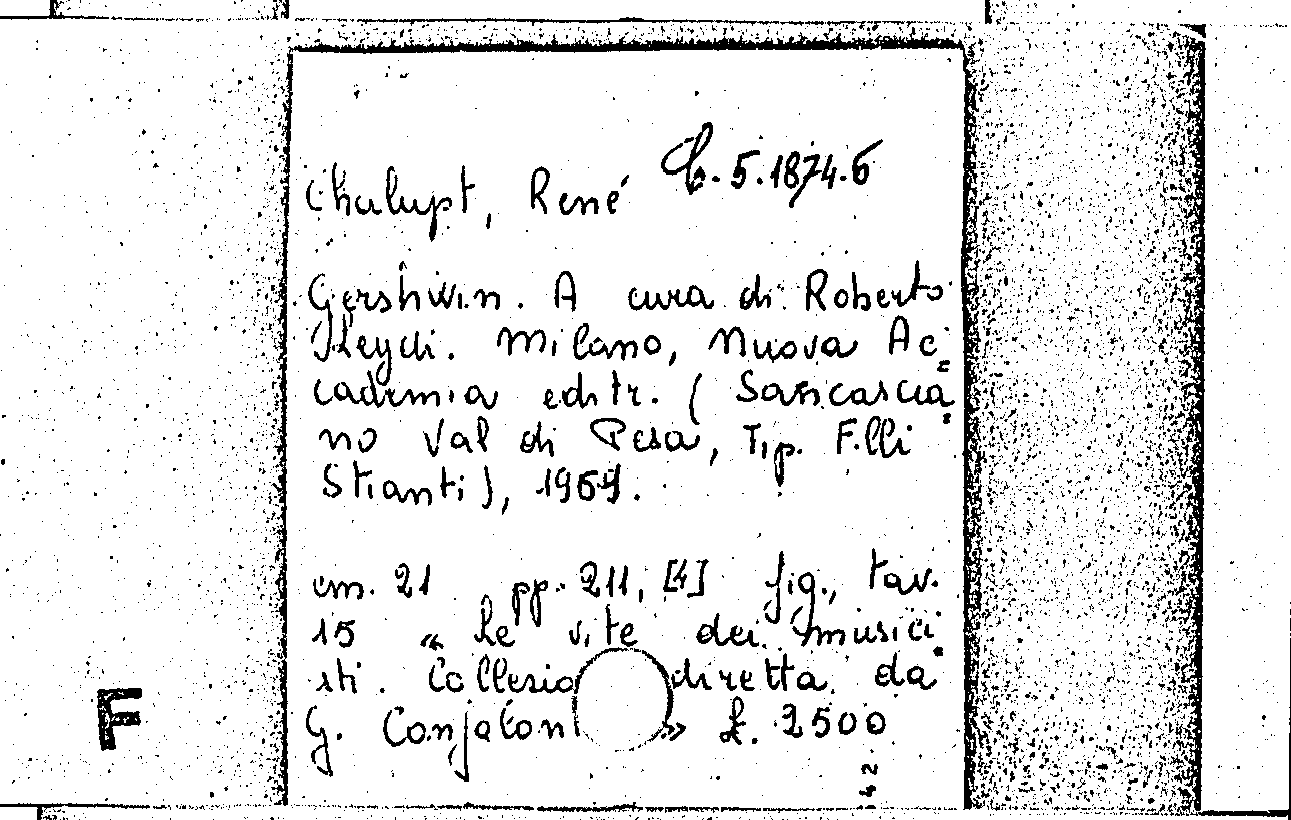 C. 5.1874.6
Chalupt, René
Gershwin. A cura di Roberto
Leydi. Milano, Nuova Ac=
cademia editr. (Sancascia=
no Val di Pesa, Tip. F.lli
Stianti), 1959.
cm. 21 pp. 211, [4] fig., tav.
15 « Le vite dei musici=
sti. Collezio diretta da
G. Confaloni » £. 2500
F
42